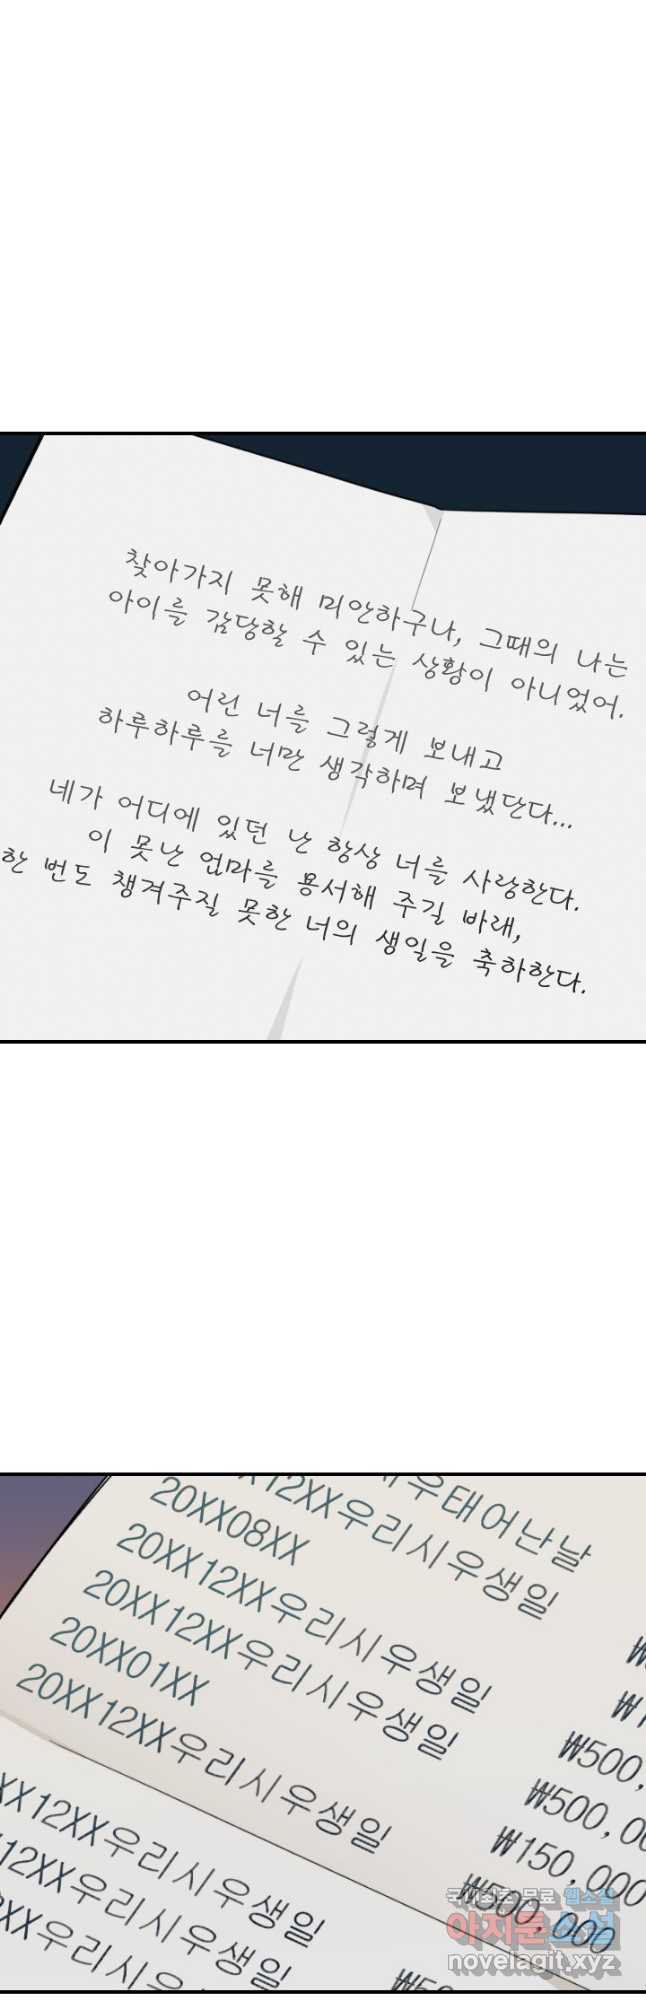 찾아가지 못해 미안하구나, 그때의 나는
아이를 감당할 수 있는 상황이 아니었어.
어린 너를 그렇게 보내고
하루하루를 너만 생각하며 보냈단다...
네가 어디에 있던 난 항상 너를 사랑한다.
이 못난 엄마를 용서해 주길 바래,
한 번도 챙겨주질 못한 너의 생일을 축하한다.
시우태어난날
12XX우리시우생일
20XX08XX
20XX12XX우리시우생일
20XX12XX우리시우생일 ₩500,
20XX01XX ₩500,0
20XX12XX우리시우생일 ₩150,000
₩500,000
XX12XX우리시우생일
12XX우리시우생일
XX우리시우생일
국내최초 무료 웹소설
아지툰소설
novelagit.xyz